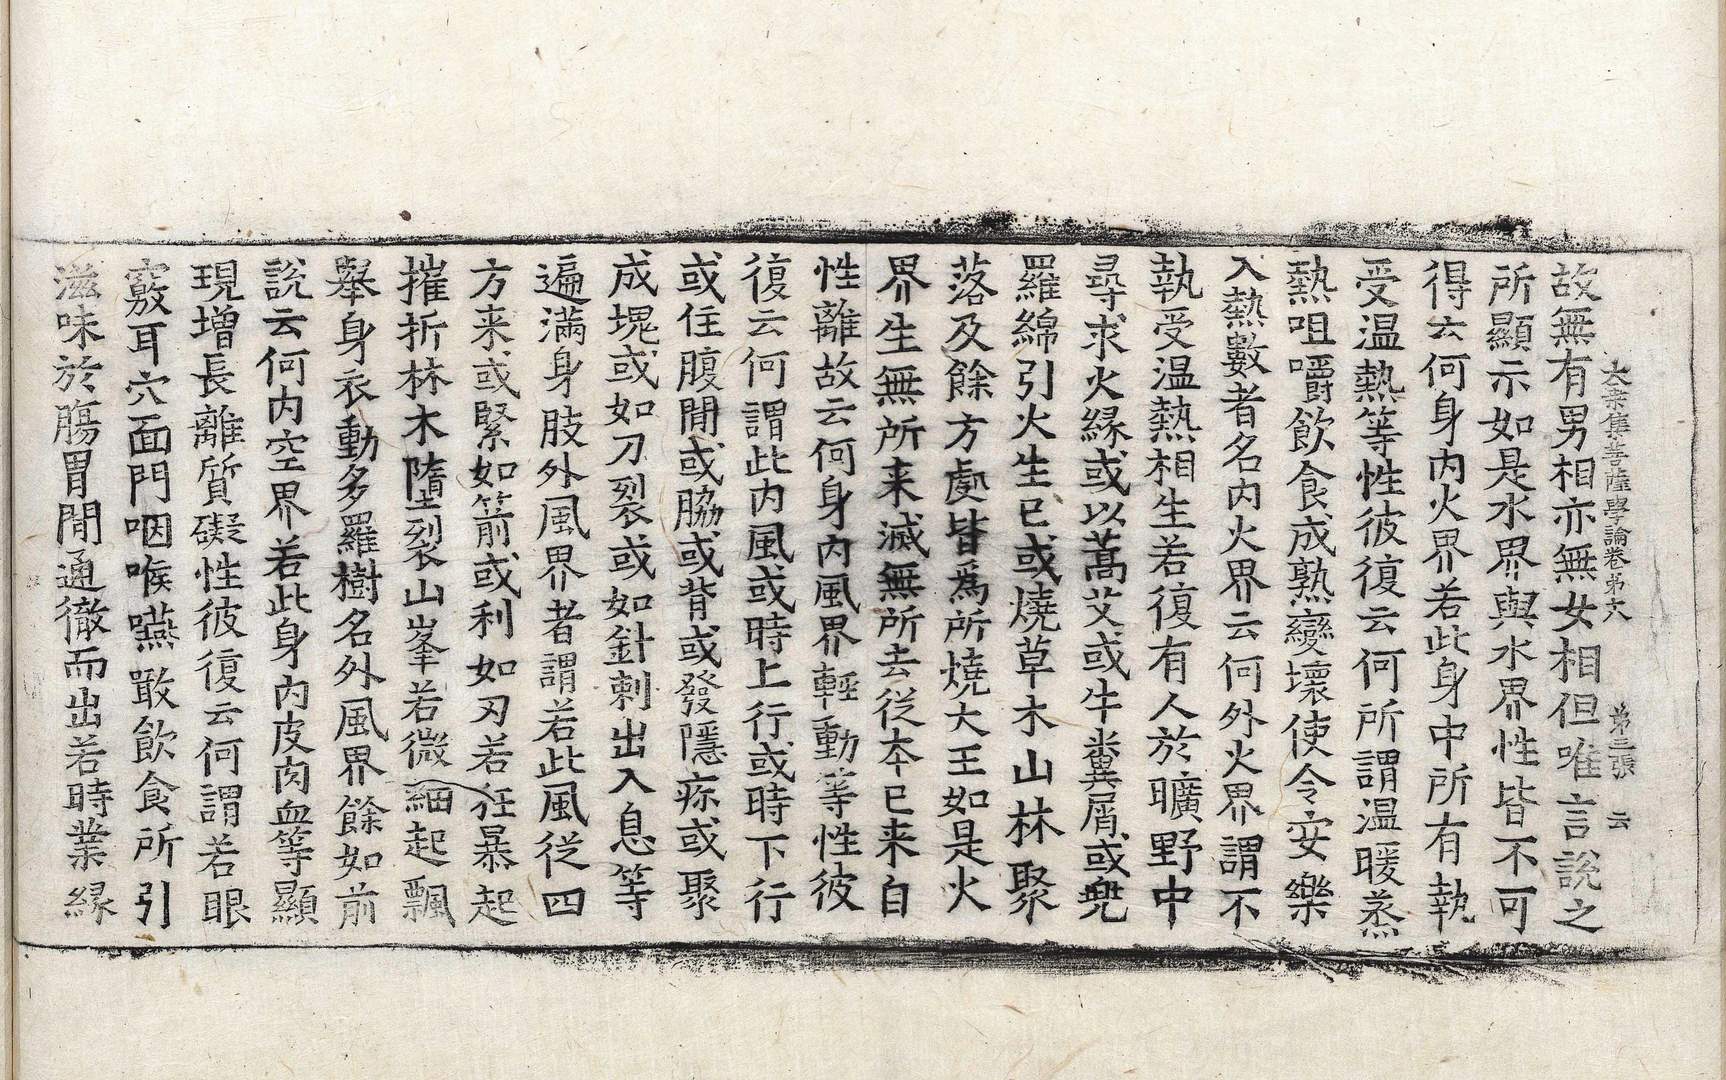 大乗集菩薩學論卷苐六 苐三張 云
故無有男相亦無女相但唯言說之
所顯示如是水界與水界性皆不可
得云何身内火界若此身中所有執
受温熱等性彼復云何所謂温暖蒸
熱咀嚼飲食成熟變壞使令安樂
入熱數者名内火界云何外火界謂不
執受温熱相生若復有人於曠野中
尋求火縁或以蒿艾或牛糞屑或兠
羅綿引火生已或燒草木山林聚
落及餘方處皆爲所燒大王如是火
界生無所来滅無所去從本已来自
性離故云何身内風界輕動等性彼
復云何謂此内風或時上行或時下行
或住腹間或脇或背或發隱疹或聚
成塊或如刀裂或如針刺出入息等
遍滿身肢外風界者謂若此風從四
方来或緊如箭或利如刃若狂暴起
摧折林木墮裂山峯若微細起飄
舉身衣動多羅樹名外風界餘如前
說云何内空界若此身内皮肉血等顯
現增長離質礙性彼復云何謂若眼
竅耳穴面門咽喉嚥噉飲食所引
滋味於膓胃間通徹而出若時業縁